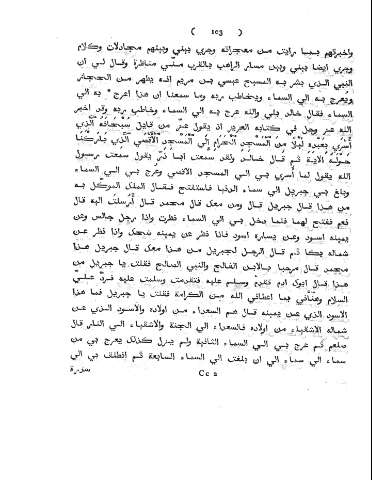 ( ١٥٣ )
واخبرتهم بـمـا رايت مـن معجزاته وجري بيني وبينهم مجادلات وكلام
وجري ايضا بيني وبين الراعب بالقرب مناظرة وقال لي ان
النبي الـذي بشر به المسيح عيسي بن مريم انه يظهر من الحجاز
ويعرج به الي السماء ويخاطب ربه وما سمعنا ان هذا اعرج به الي
السماء فقال خالد بلي والله عرج به الي السماء وخاطب ربه وقد اخبر
الله عز وجل في كتابه العزيز اذ يقول عز من قايل سُبْحَانَهُ الَّذِي
أَسْرَى بِعَبْدِهِ لَيْلًا مِنَ الْمَسْجِدِ الْحَرَامِ إِلَى الْمَسْجِدِ الْأَقْصَى الَّذِي بَارَكْنَا
حَوْلَهُ الآية ثم قال خالد ولقد سمعت ابا ذر يقول سمعت رسول
الله يقول لما أُسري بي الي المسجد الاقصي وعرج بي الي السماء
وبلغ بي جبريل الي سماء الدنيا فاستفتح فـقـال الملك الموكل به
من هـذا قال جبريل قال ومن معك قال محمد قال أُرسلت اليه قال
نعم ففتح لهما فلما دخل بي الي السماء نظرت واذا رجل جالس وعن
يمينه اسود وعـن يساره اسود فاذا نظر عن يمينه ضحك واذا نظر عن
شماله بكا ثم قال الرجل لجبريل مـن هذا معك قال جبريل هذا
محمد قال مرحبا بالابن الصالح والنبي الصالح فقلت يا جبريل من
هذا قال ابوك ادم تقدم وسلم عليه فتقدمت وسلمت عليه فردّ عليّ
السلام وهنّاني بما اعطاني الله من الكرامة فقلت يا جبريل فما هذا
الاسود الذي عن يمينه قال هـم السعداء من اولاده والاسود الذي عن
شماله الاشقياء من اولاده فالسعداء الي الجنة والاشقياء الي النار قال
صلعم ثم عرج بي الي السماء الثانية ولم يزل كذلك يعرج بي من
سماء الي سماء الي ان بلغت الي السماء السابعة ثم انطلق بي الي
سدرة
Cc 2